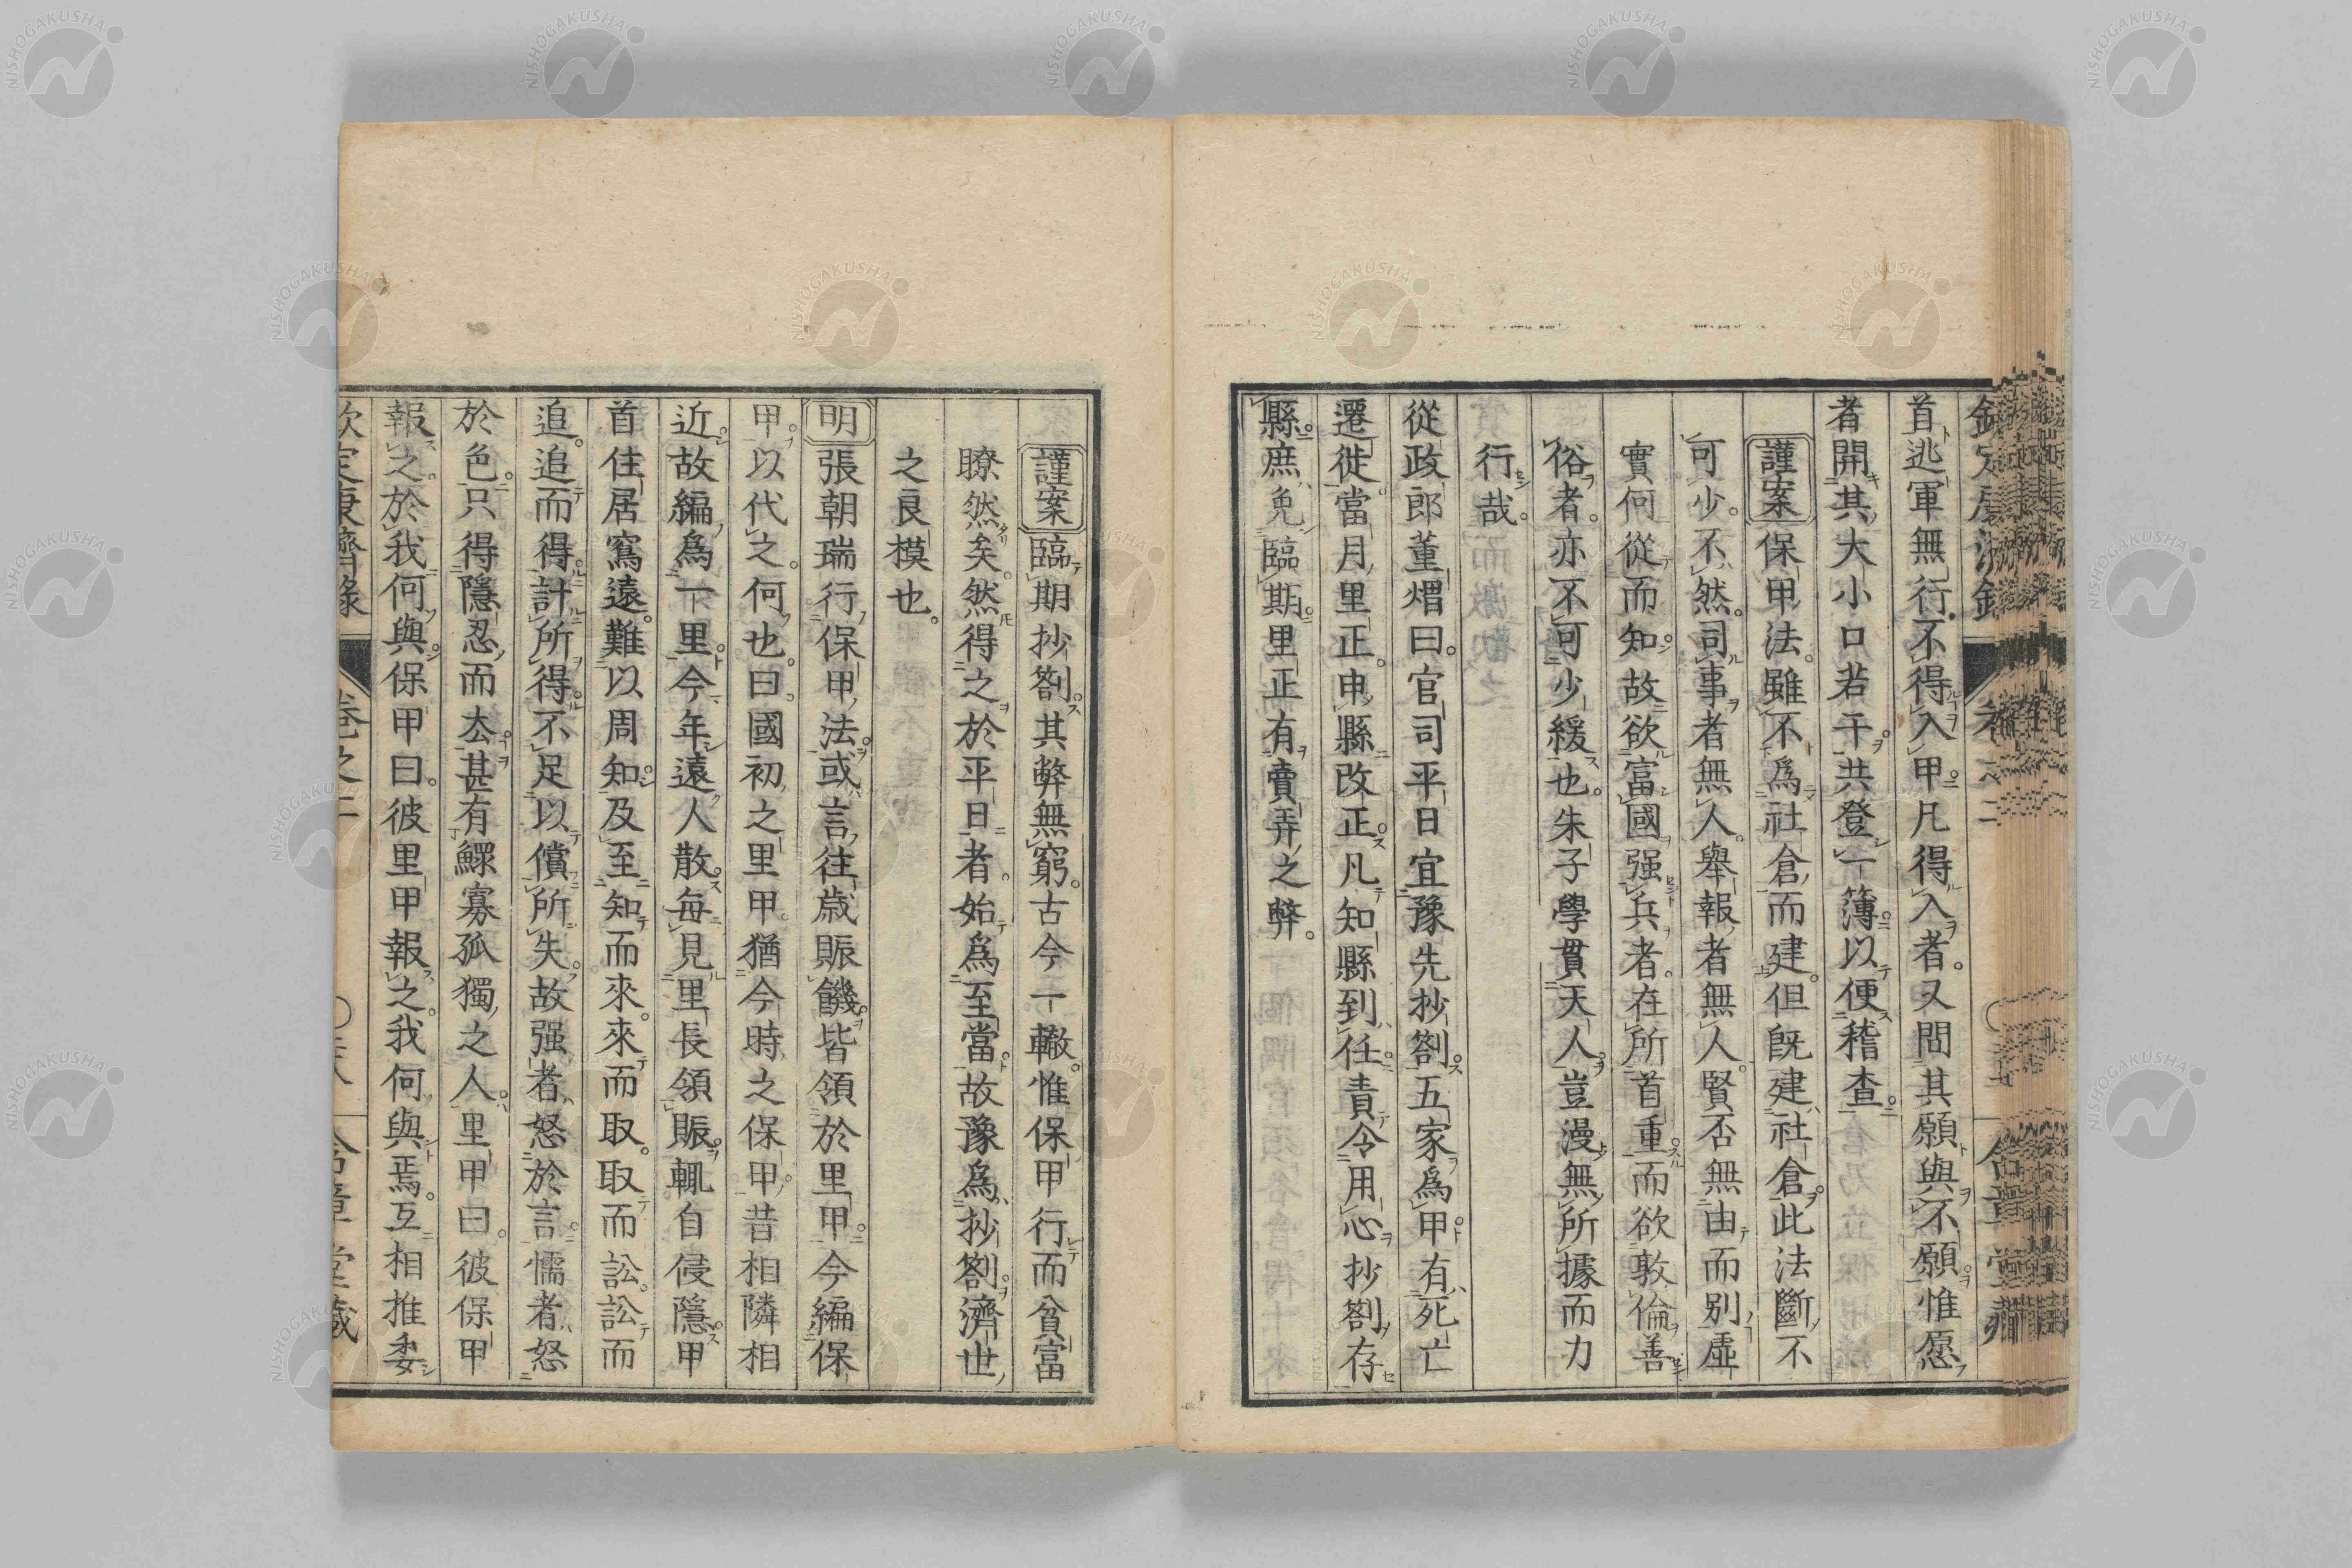 首逃軍無行不得入甲凡得入者又問其願與不願惟愿
者開其大小口若干共登一簿以便稽查
謹案保甲法雖不爲社倉而建但既建社倉此法斷不
可少不然司事者無人舉報者無人賢否無由而別虛
實何從而知故欲富國强兵者在所首重而欲敦倫善
俗者亦不可少緩也朱子學貫天人豈漫無所據而力
行哉
從政郎董煟曰官司平日宜豫先抄劄五家爲甲有死亡
遷徙當月里正申縣改正凡知縣到任責令用心抄劄存
縣庶免臨期里正有賣弄之弊
謹案臨期抄劄其弊無窮古今一轍惟保甲行而貧富
瞭然矣然得之於平日者始爲至當故豫爲抄劄濟世
之良模也
明張朝瑞行保甲法或言往歳賑饑皆領於里甲今編保
甲以代之何也曰國初之里甲猶今時之保甲昔相隣相
近故編爲一里今年遠人散每見里長領賑輒自侵隱甲
首住居寫遠難以周知及至知而來來而取取而訟訟而
追追而得計所得不足以償所失故强者怒於言懦者怒
於色只得隱忍而去甚有鰥寡孤獨之人里甲曰彼保甲
報之於我何與保甲曰彼里甲報之我何與焉互相推委
欽定康濟錄 卷之二 含章堂藏
NISHOGAKUSHA